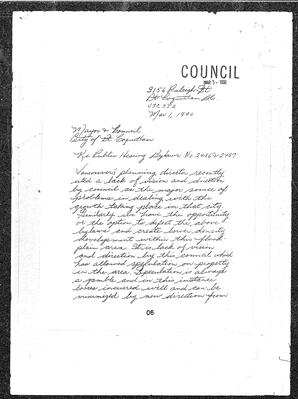 COUNCIL
MAR 5 - 1990
3156 Raleigh St
Pt Coquitlam BC
Mar 1, 1990
Mayor & Council
City of Pt Coquitlam
Re Public Hearing Bylaws No 2486 & 2487
Vancouver's planning director recently
cited a lack of vision and direction
by councils as the major source of
problems in dealing with the
growth taking place in that city.
Similarly we have the opportunity
or the option to defeat the above
bylaws and create lower density
development within this flood
plain area. It is lack of vision
and direction by this council which
has allowed speculation on property
in the area. Speculation is always
a gamble and in this instance
losses incurred will and can be
minimized by new direction from
06